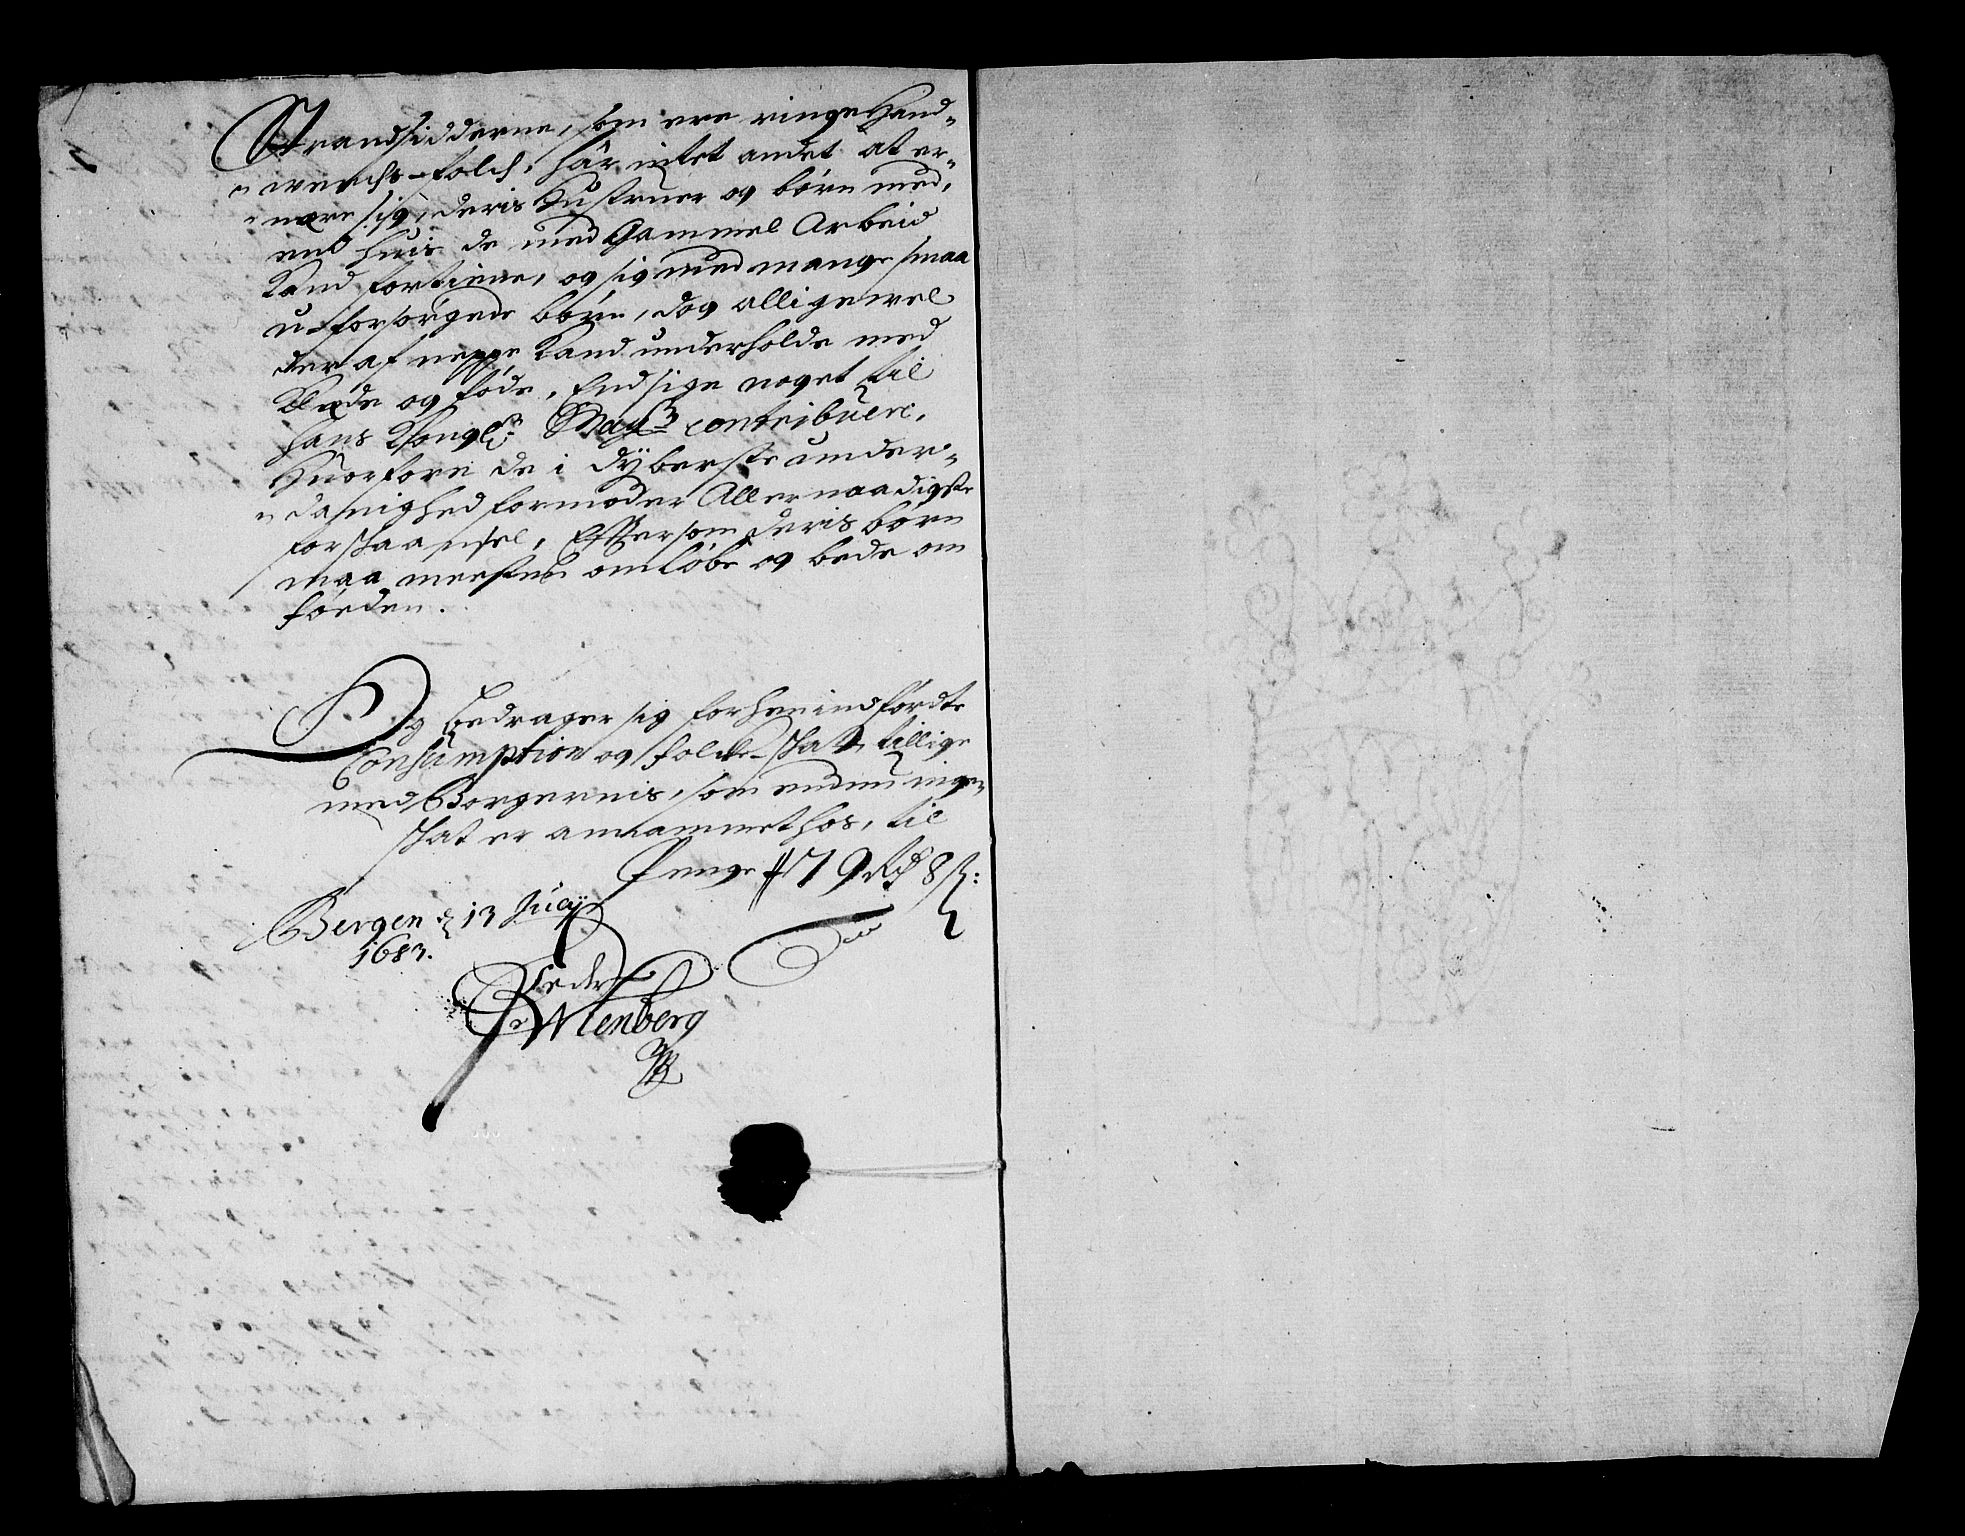 Strandsidderne, som ere ringe Hand-
werchs-folch, hâr intet andet at er-
nære sig, deris Hustruer og børn med,
end huis de med Gammel Arbeid
Kand fortiene, og sig med mange smaa
u-forsørgede børn, dog alligewel
der af neppe Kand underholde med
Klæde og føde, Endsige noget til
Hans Kongl: Mayst: contribuere,
Huorfore de i dÿberste under-
danighed formoder Allernaadigste
forskaansel, Eftersom deris børn
maa meesten omløbe og bede om
føeden.
Og bedrager sig forhen indførdte
Consumption og folcke-skatt, tillige
med Borgernis, som endnu ingen
skat er annammet hos, til
Penge 179 Rd 8 ß:
Bergen d 13 Julij
1683.
Peder